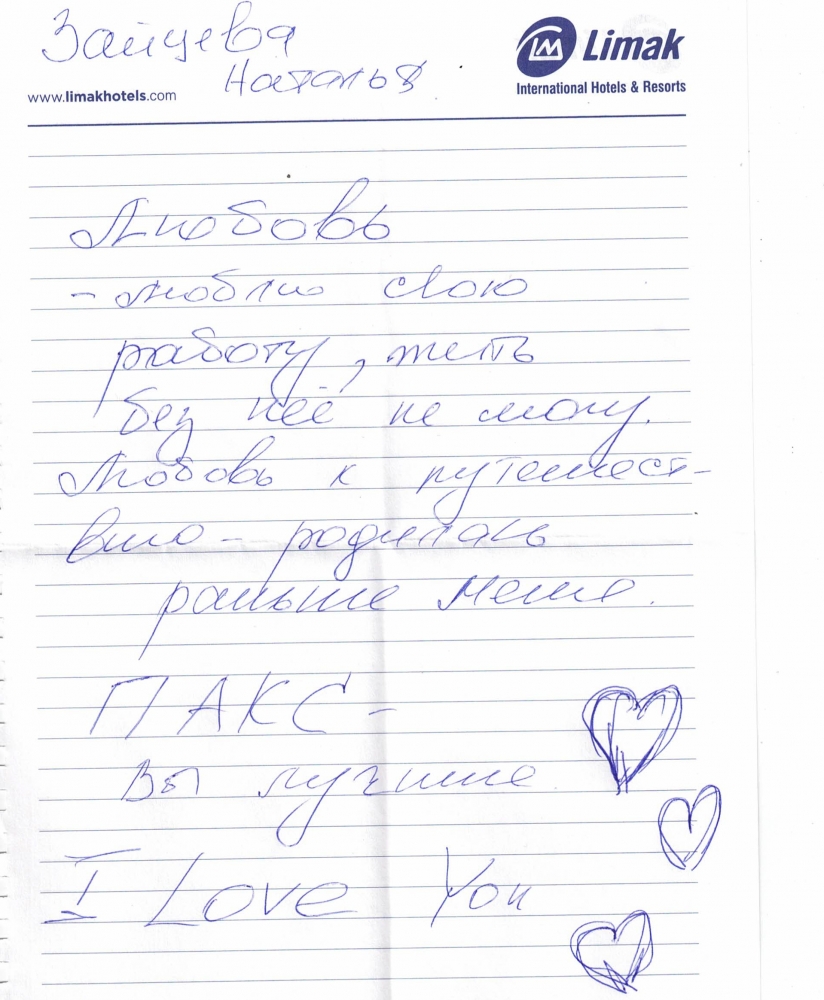 Зайцева
Наталья
Limak
International Hotels & Resorts
www.limakhotels.com
Любовь
- люблю свою
работу, жить
без неё не могу.
Любовь к путешест-
вию - родилась
раньше меня.
ПАКС -
вы лучшие
I Love You